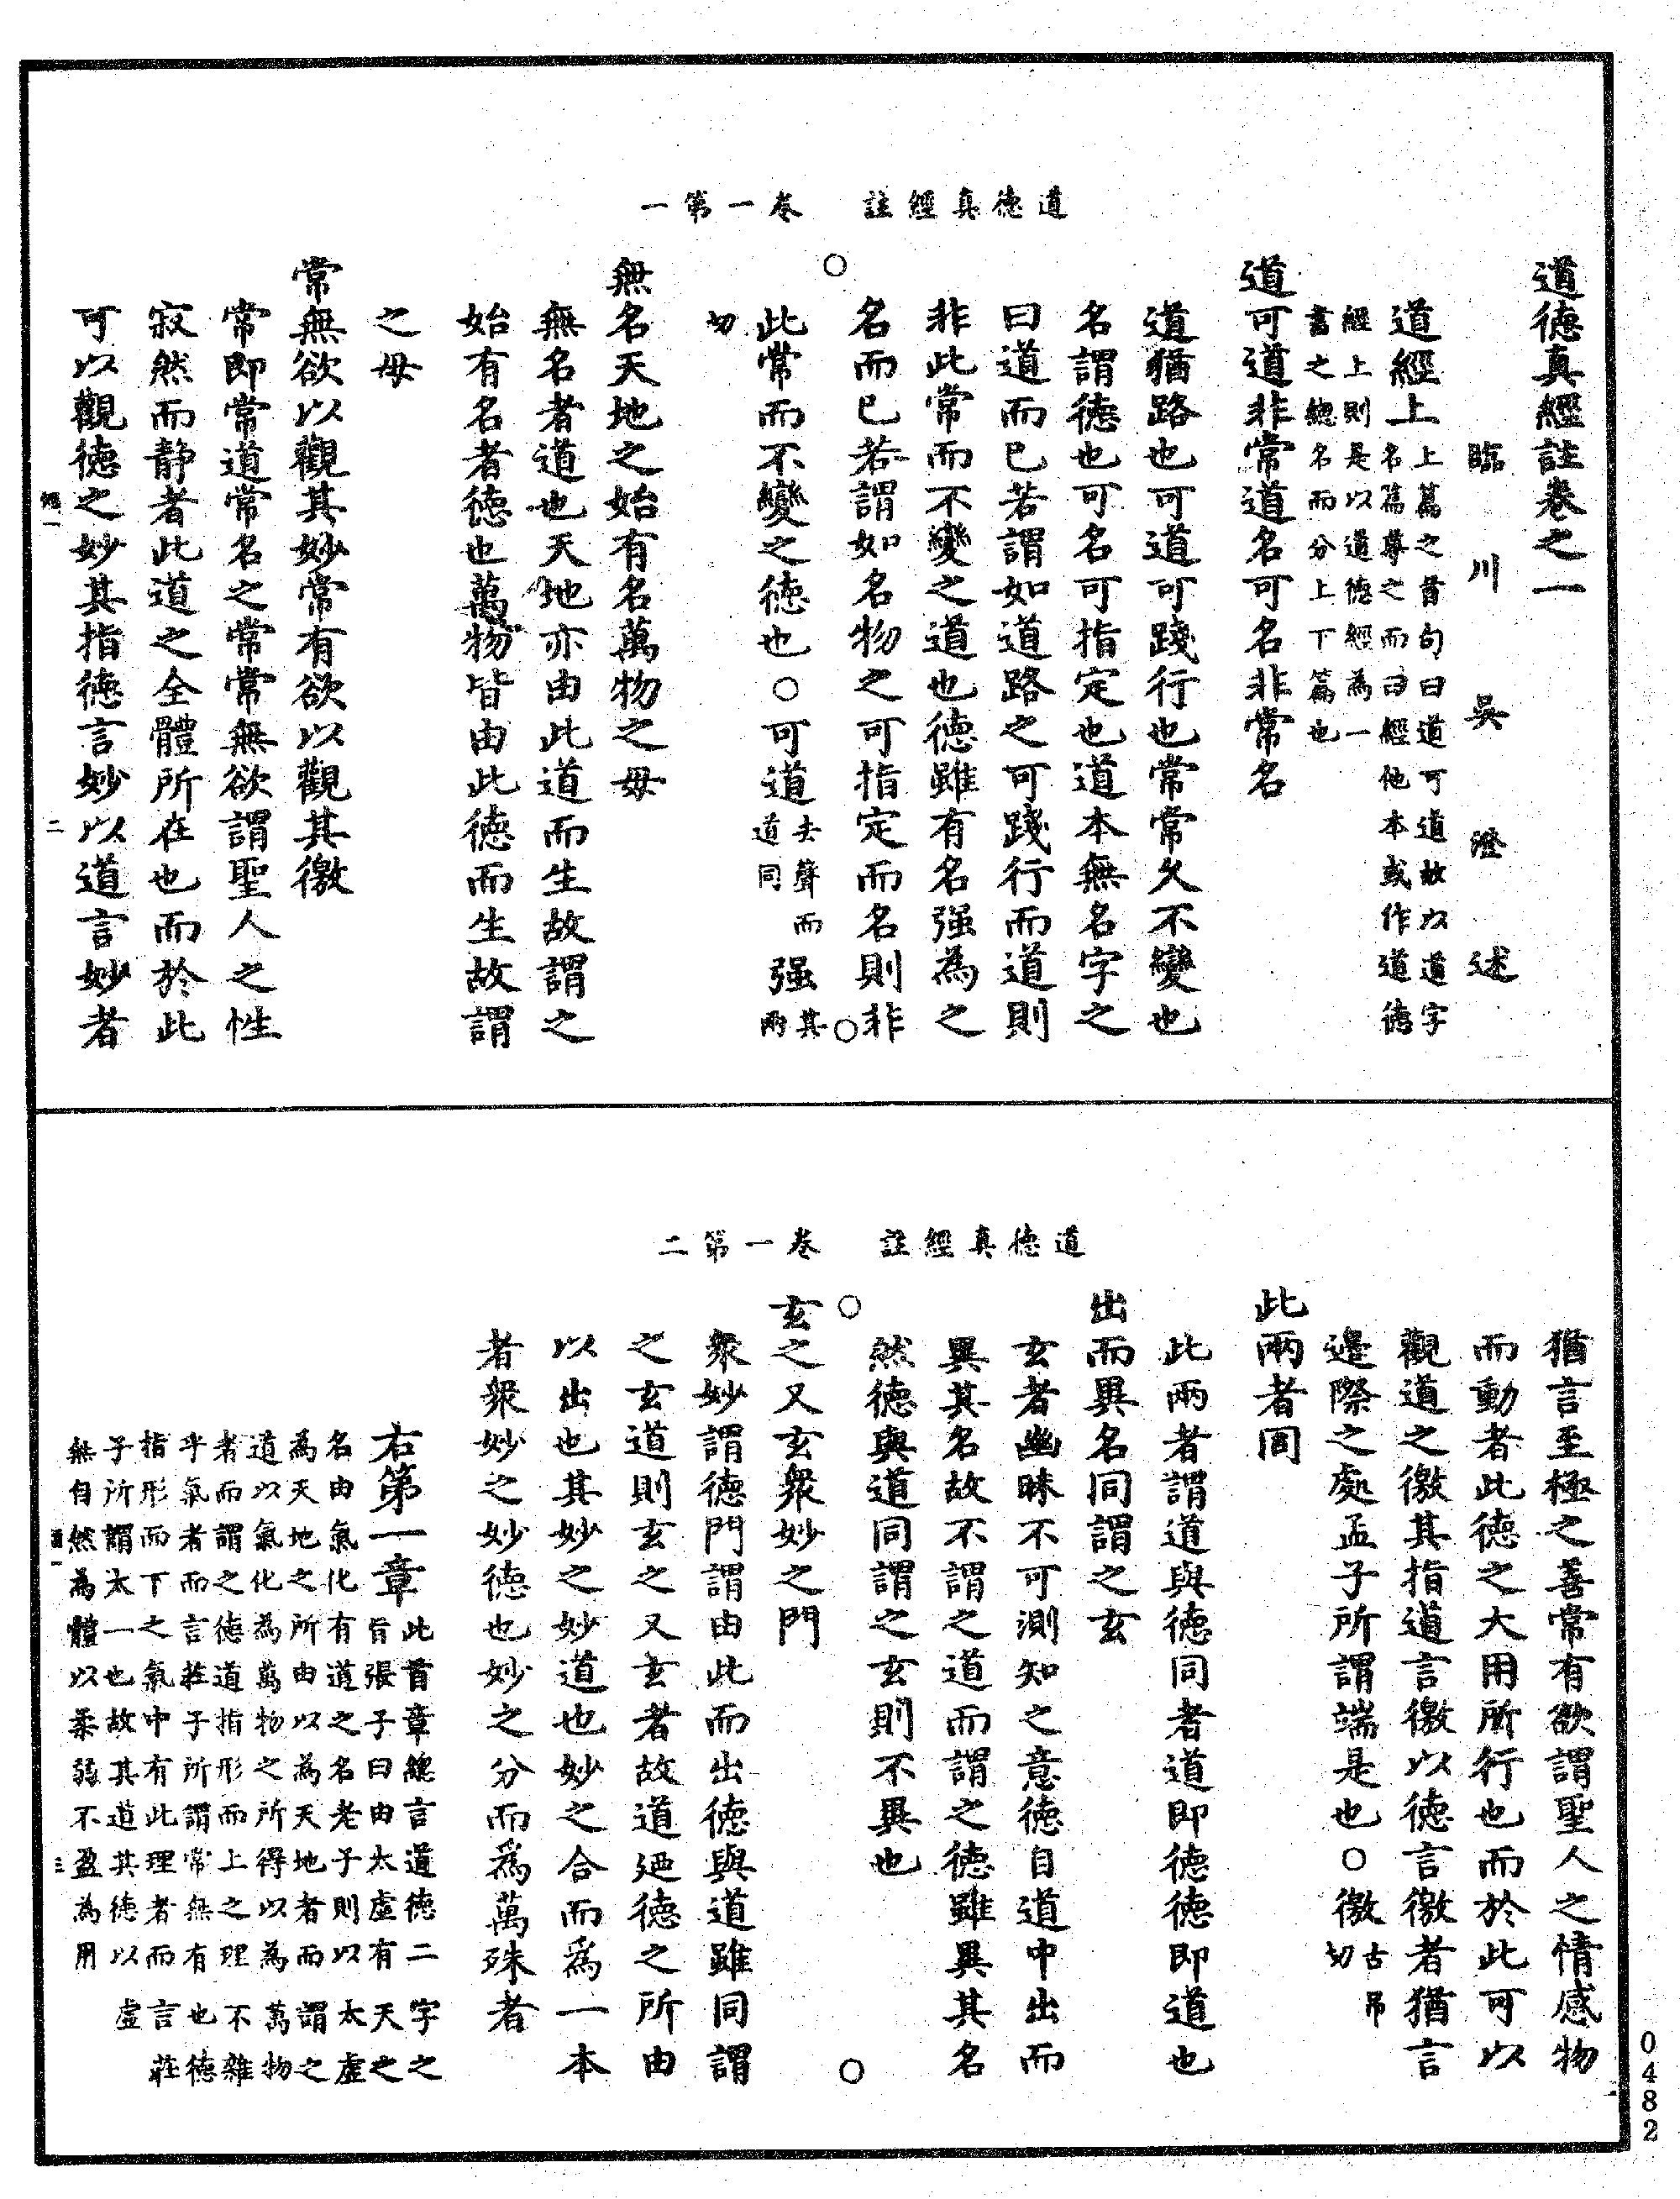 道德真經註　卷一第一
道德真經註卷之一
臨川吳澄述
道經上上篇之首句曰道可道故以道字
名篇尊之而曰經他本或作道德
經上則是以道德經為一
書之總名而分上下篇也
道可道非常道名可名非常名
道猶路也可道可踐行也常常久不變也
名謂德也可名可指定也道本無名字之
曰道而已若謂如道路之可踐行而道則
非此常而不變之道也德雖有名强為之
名而已若謂如名物之可指定而名則非
此常而不變之德也○可道去聲而
道同强其
兩
切
無名天地之始有名萬物之母
無名者道也天地亦由此道而生故謂之
始有名者德也萬物皆由此德而生故謂
之母
常無欲以觀其妙常有欲以觀其徼
常即常道常名之常常無欲謂聖人之性
寂然而静者此道之全體所在也而於此
可以觀德之妙其指德言妙以道言妙者
二
道德真經註　卷一第二
猶言至極之善常有欲謂聖人之情感物
而動者此德之大用所行也而於此可以
觀道之徼其指道言徼以德言徼者猶言
邊際之處孟子所謂端是也○徼古弔
切
此兩者同
此兩者謂道與德同者道即德德即道也
出而異名同謂之玄
玄者幽昧不可測知之意德自道中出而
異其名故不謂之道而謂之德雖異其名
然德與道同謂之玄則不異也
玄之又玄衆妙之門
衆妙謂德門謂由此而出德與道雖同謂
之玄道則玄之又玄者故道廼德之所由
以出也其妙之妙道也妙之合而爲一本
者衆妙之妙德也妙之分而爲萬殊者
右第一章此首章總言道德二字之
旨張子曰由太虛有天之
名由氣化有道之名老子則以太虛
為天地之所由以為天地者而謂之
道以氣化為萬物之所得以為萬物
者而謂之德道指形而上之理不雜
乎氣者而言莊子所謂常無有也德
指形而下之氣中有此理者而言莊
子所謂太一也故其道其德以虛
無自然為體以柔弱不盈為用
三
0482